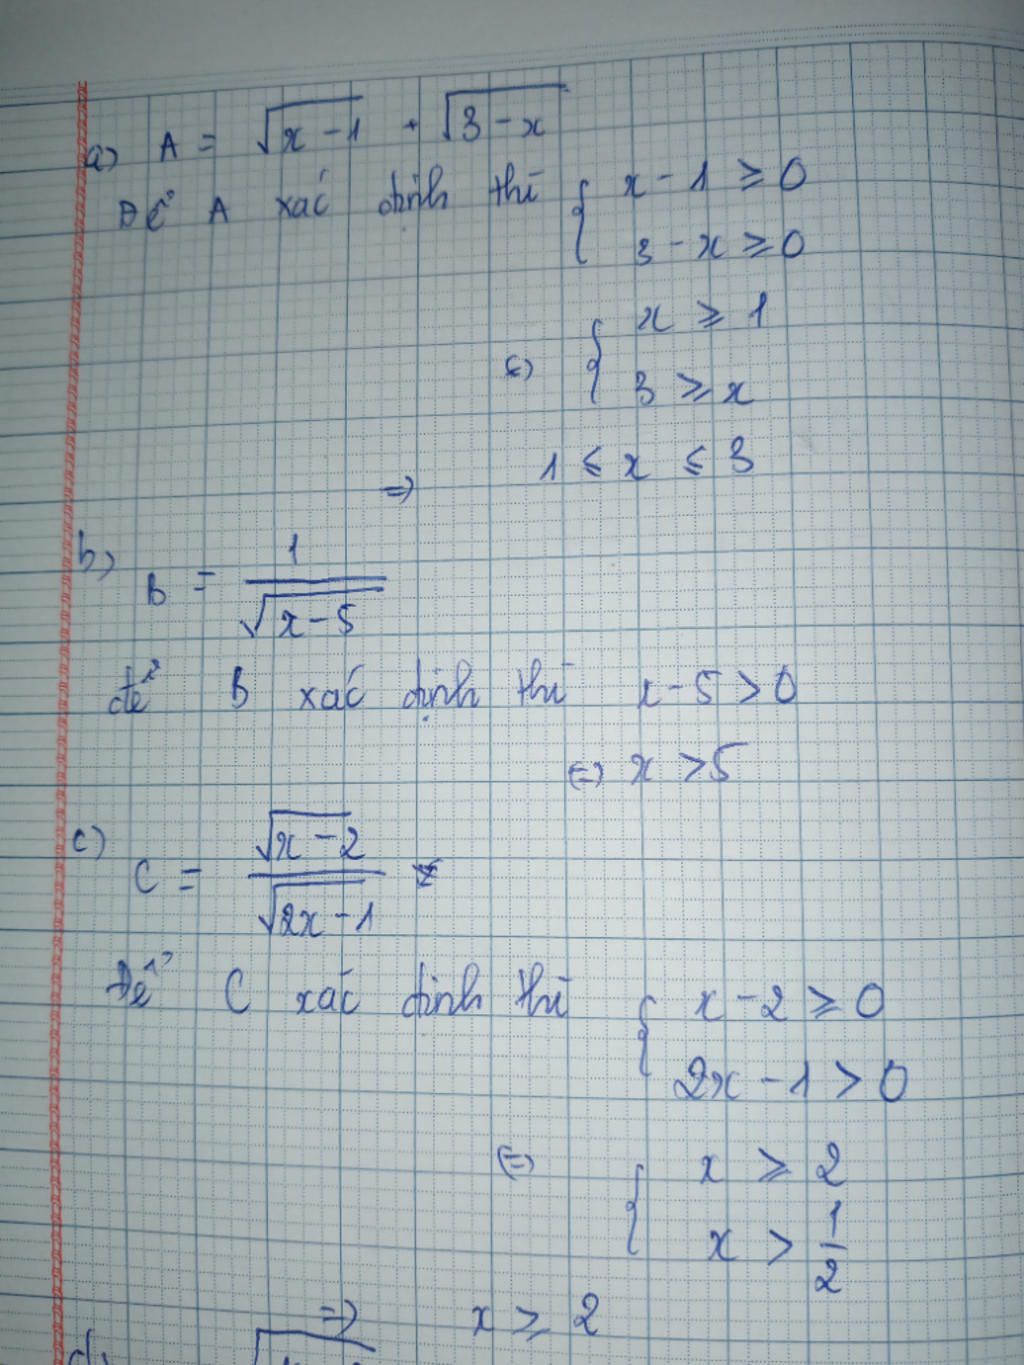 a) A = √(x-1) + √(3-x)
Để A xác định thì { x - 1 ≥ 0
3 - x ≥ 0
<=> { x ≥ 1
3 ≥ x
=> 1 ≤ x ≤ 3
b) B = 1/√(x-5)
để B xác định thì x - 5 > 0
<=> x > 5
c) C = √(x-2)/√(2x-1)
Để C xác định thì { x - 2 ≥ 0
2x - 1 > 0
<=> { x ≥ 2
x > 1/2
=> x ≥ 2
d)